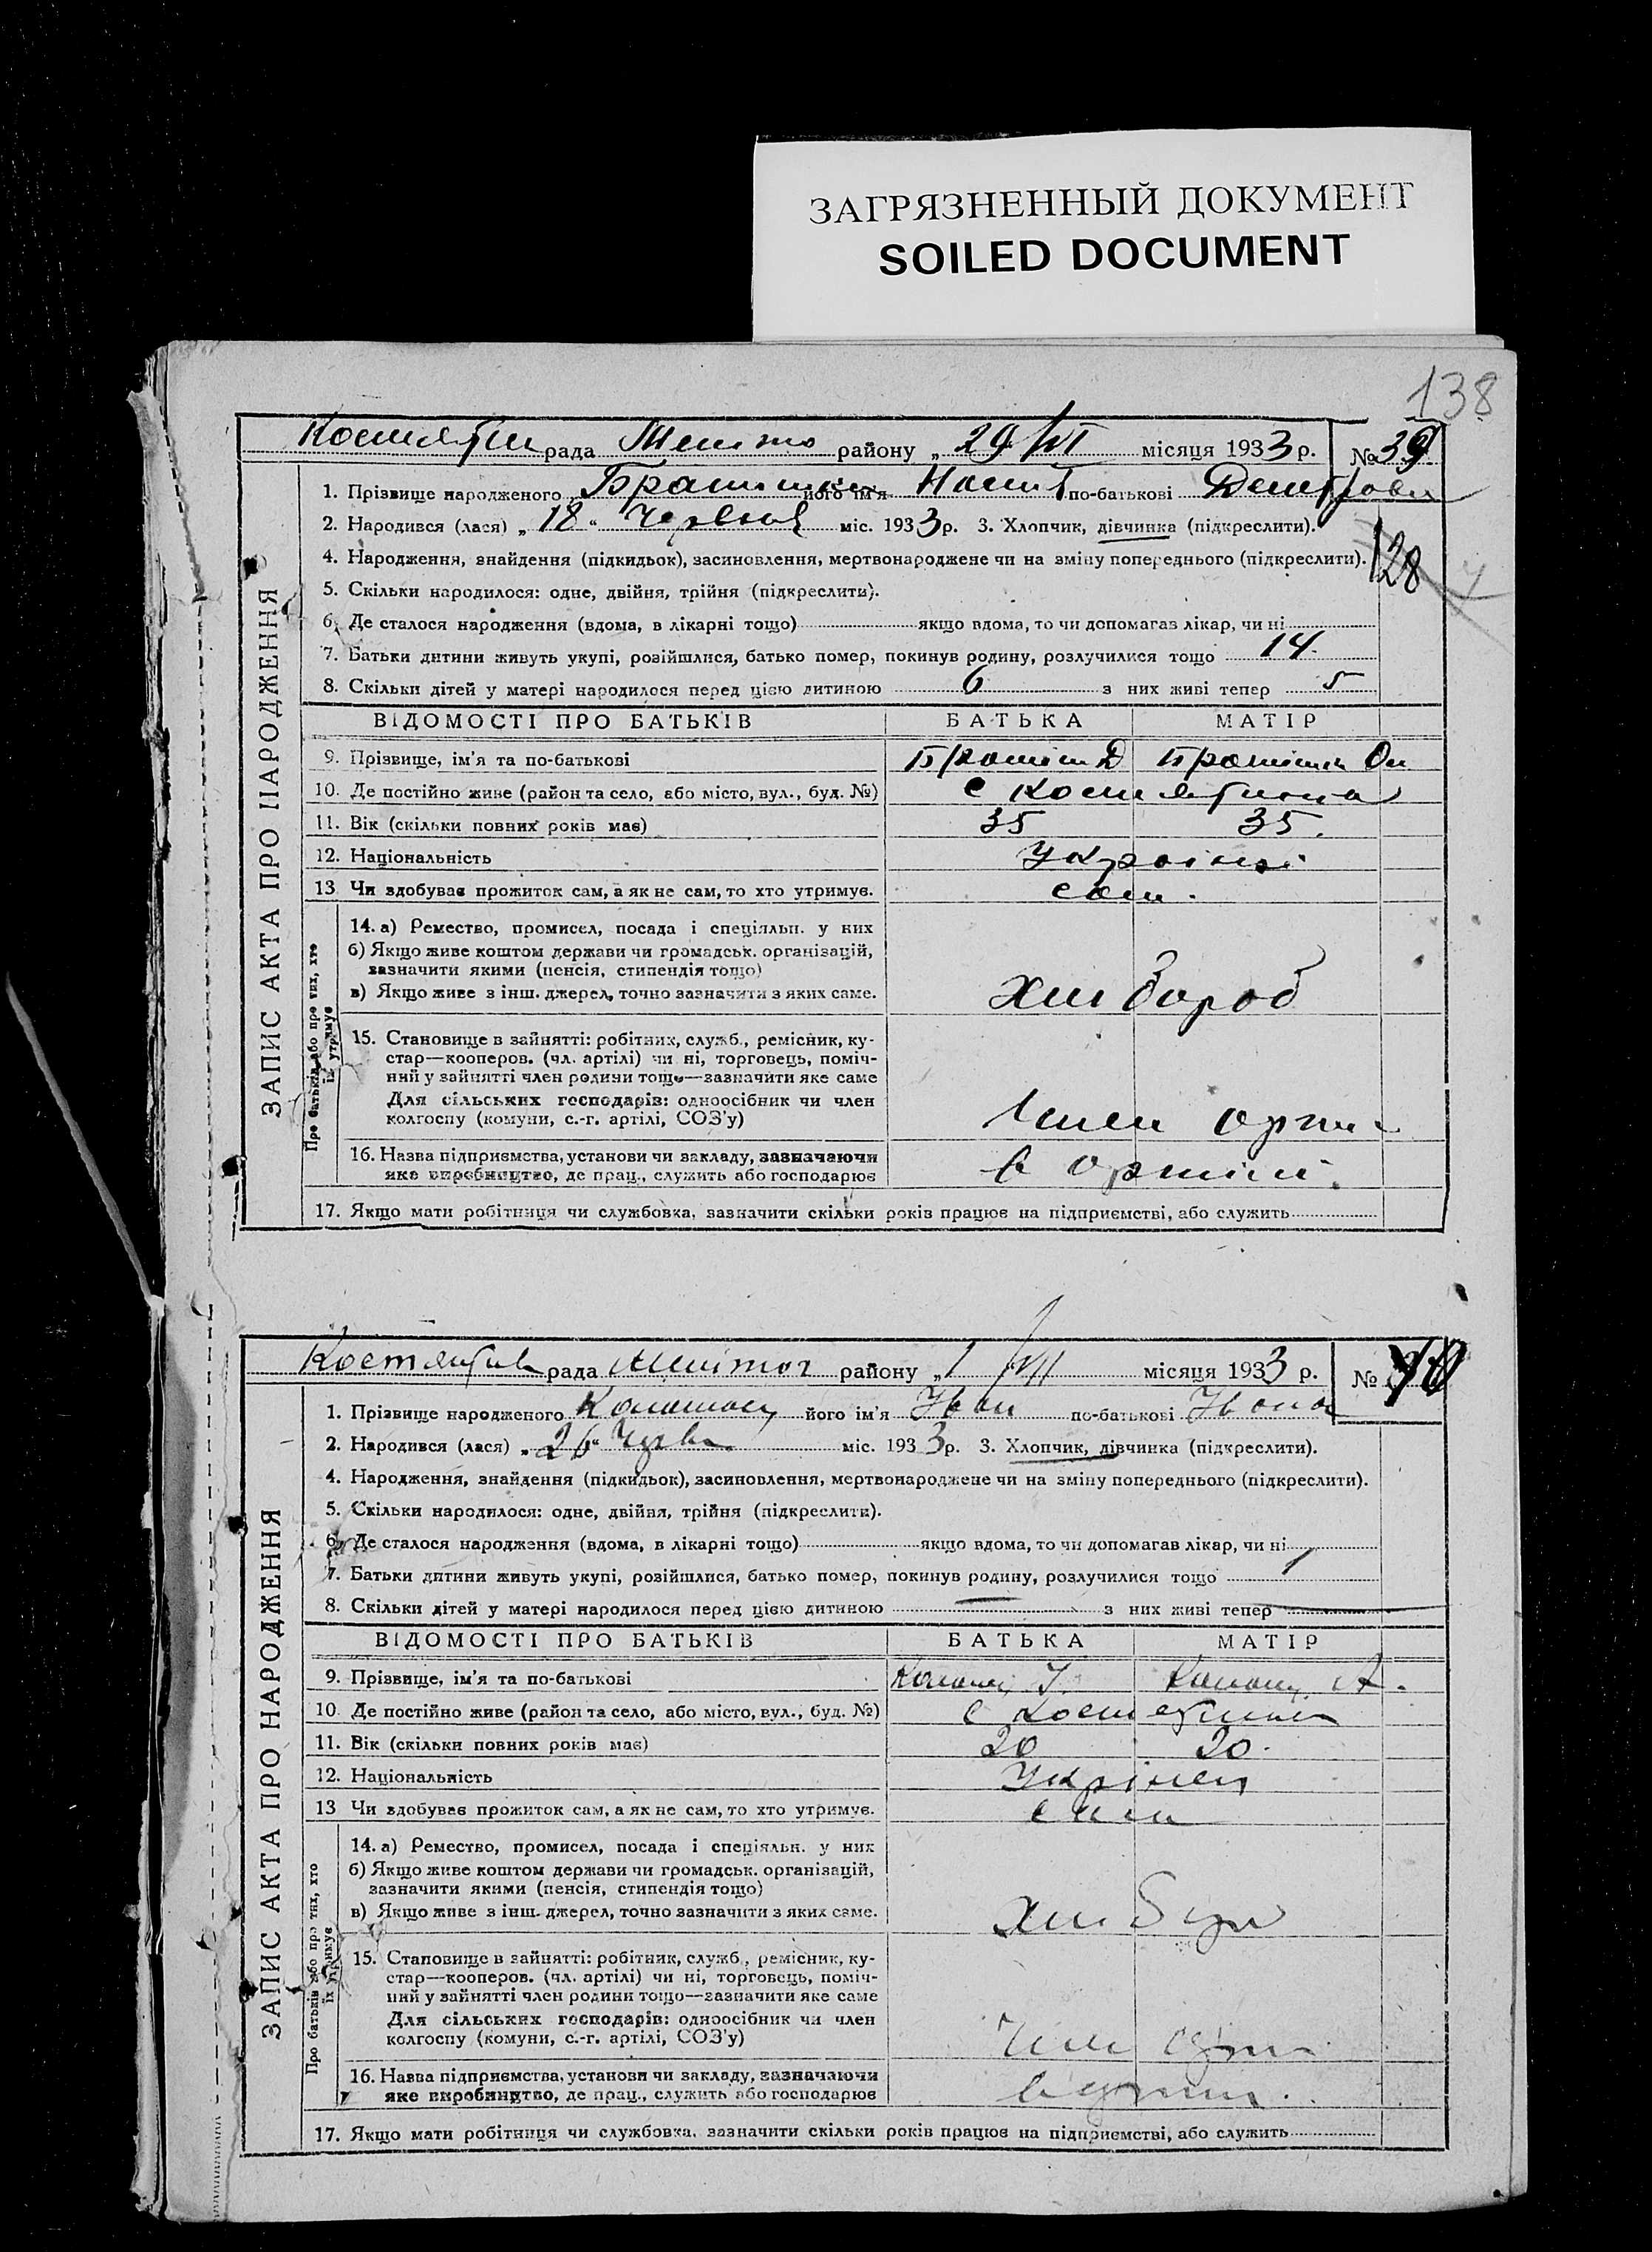 ЗАГРЯЗНЕННЫЙ ДОКУМЕНТ
SOILED DOCUMENT
138
рада району „ 29/VI місяця 1933 р. № 39
1. Прізвище народженого його ім'я по-батькові
2. Народився (лася) „ 18 “ Червня міс. 1933 р. 3. Хлопчик, дівчинка (підкреслити).
128
4. Народження, знайдення (підкидьок), засиновлення, мертвонароджене чи на зміну попереднього (підкреслити).
5. Скільки народилося: одне, двійня, трійня (підкреслити).
6. Де сталося народження (вдома, в лікарні тощо) якщо вдома, то чи допомагав лікар, чи ні
7. Батьки дитини живуть укупі, розійшлися, батько помер, покинув родину, розлучилися тощо 14
8. Скільки дітей у матері народилося перед цією дитиною 6 з них живі тепер 5
ВІДОМОСТІ ПРО БАТЬКІВ БАТЬКА МАТІР
9. Прізвище, ім'я та по-батькові
10. Де постійно живе (район та село, або місто, вул., буд. №) с
11. Вік (скільки повних років має) 35 35.
12. Національність
13. Чи здобуває прожиток сам, а як не сам, то хто утримує. сам.
14. а) Ремество, промисел, посада і спеціяльн. у них
б) Якщо живе коштом держави чи громадськ. організацій,
зазначити якими (пенсія, стипендія тощо)
в) Якщо живе з інш. джерел, точно зазначити з яких саме.
15. Становище в зайнятті: робітник, служб., ремісник, ку-
стар—кооперов. (чл. артілі) чи ні, торговець, поміч-
ний у зайнятті член родини тощо—зазначити яке саме
Для сільських господарів: одноосібник чи член
колгоспу (комуни, с.-г. артілі, СОЗ'у)
16. Назва підприємства, установи чи закладу, зазначаючи
яке виробництво, де прац., служить або господарює
17. Якщо мати робітниця чи службовка, зазначити скільки років працює на підприємстві, або служить
ЗАПИС АКТА ПРО НАРОДЖЕННЯ
Про батьків або про тих, хто
їх утримує
рада району „ 1/VII місяця 1933 р. № 40
1. Прізвище народженого його ім'я Іван по-батькові Івана
2. Народився (лася) „ 26 “ міс. 1933 р. 3. Хлопчик, дівчинка (підкреслити).
4. Народження, знайдення (підкидьок), засиновлення, мертвонароджене чи на зміну попереднього (підкреслити).
5. Скільки народилося: одне, двійня, трійня (підкреслити).
6. Де сталося народження (вдома, в лікарні тощо) якщо вдома, то чи допомагав лікар, чи ні
7. Батьки дитини живуть укупі, розійшлися, батько помер, покинув родину, розлучилися тощо 1
8. Скільки дітей у матері народилося перед цією дитиною — з них живі тепер —
ВІДОМОСТІ ПРО БАТЬКІВ БАТЬКА МАТІР
9. Прізвище, ім'я та по-батькові
10. Де постійно живе (район та село, або місто, вул., буд. №) с
11. Вік (скільки повних років має) 20 20.
12. Національність
13 Чи здобуває прожиток сам, а як не сам, то хто утримує. сам
14. а) Ремество, промисел, посада і спеціяльн. у них
б) Якщо живе коштом держави чи громадськ. організацій,
зазначити якими (пенсія, стипендія тощо)
в) Якщо живе з інш. джерел, точно зазначити з яких саме.
15. Становище в зайнятті: робітник, служб., ремісник, ку-
стар—кооперов. (чл. артілі) чи ні, торговець, поміч-
ний у зайнятті член родини тощо—зазначити яке саме
Для сільських господарів: одноосібник чи член
колгоспу (комуни, с.-г. артілі, СОЗ'у)
16. Назва підприємства, установи чи закладу, зазначаючи
яке виробництво, де прац., служить або господарює
17. Якщо мати робітниця чи службовка, зазначити скільки років працює на підприємстві, або служить
ЗАПИС АКТА ПРО НАРОДЖЕННЯ
Про батьків або про тих, хто
їх утримує